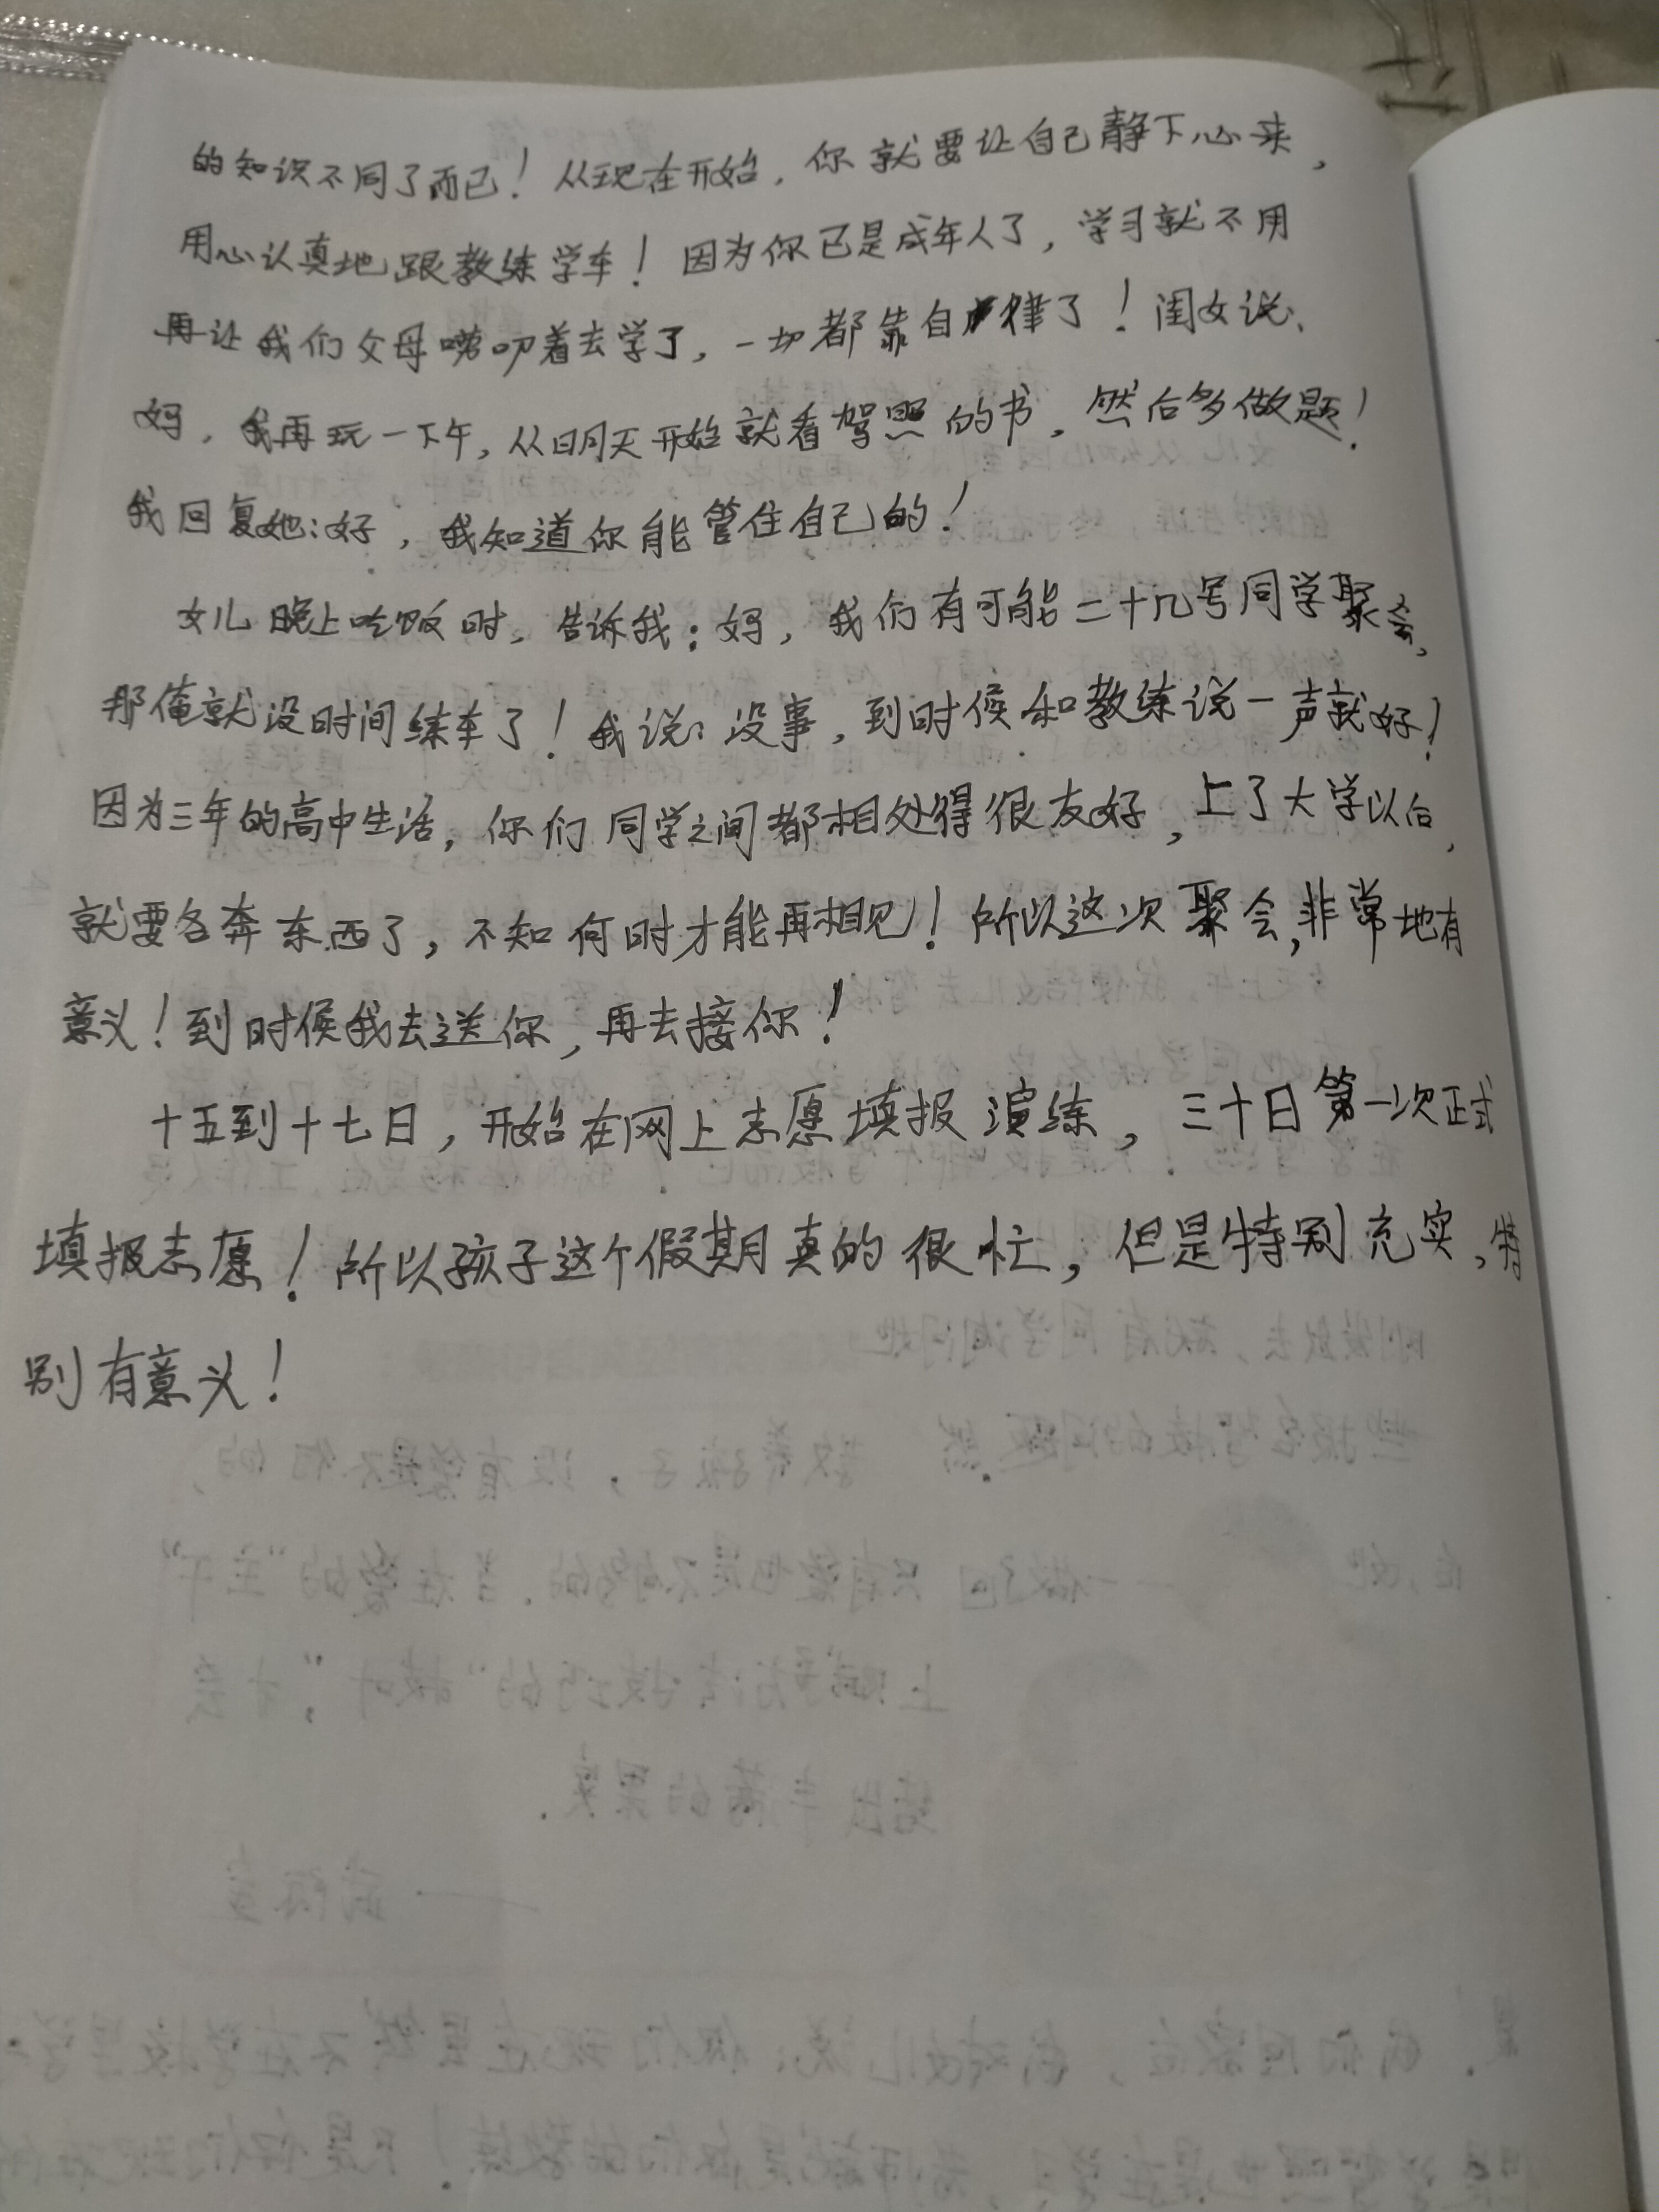 的知识不同了而已！从现在开始，你就要让自己静下心来，
用心认真地跟教练学车！因为你已是成年人了，学习就不用
再让我们父母唠叨着去学了，一切都靠自律了！闺女说：
妈，我再玩一下午，从明天开始就看驾照的书，然后多做题！
我回复她：好，我知道你能管住自己的！
女儿晚上吃饭时，告诉我：妈，我们有可能二十几号同学聚会，
那俺就没时间练车了！我说：没事，到时候和教练说一声就好！
因为三年的高中生活，你们同学之间都相处得很友好，上了大学以后，
就要各奔东西了，不知何时才能再相见！所以这次聚会，非常地有
意义！到时候我去送你，再去接你！
十五到十七日，开始在网上志愿填报演练，三十日第一次正式
填报志愿！所以孩子这个假期真的很忙，但是特别充实，特
别有意义！